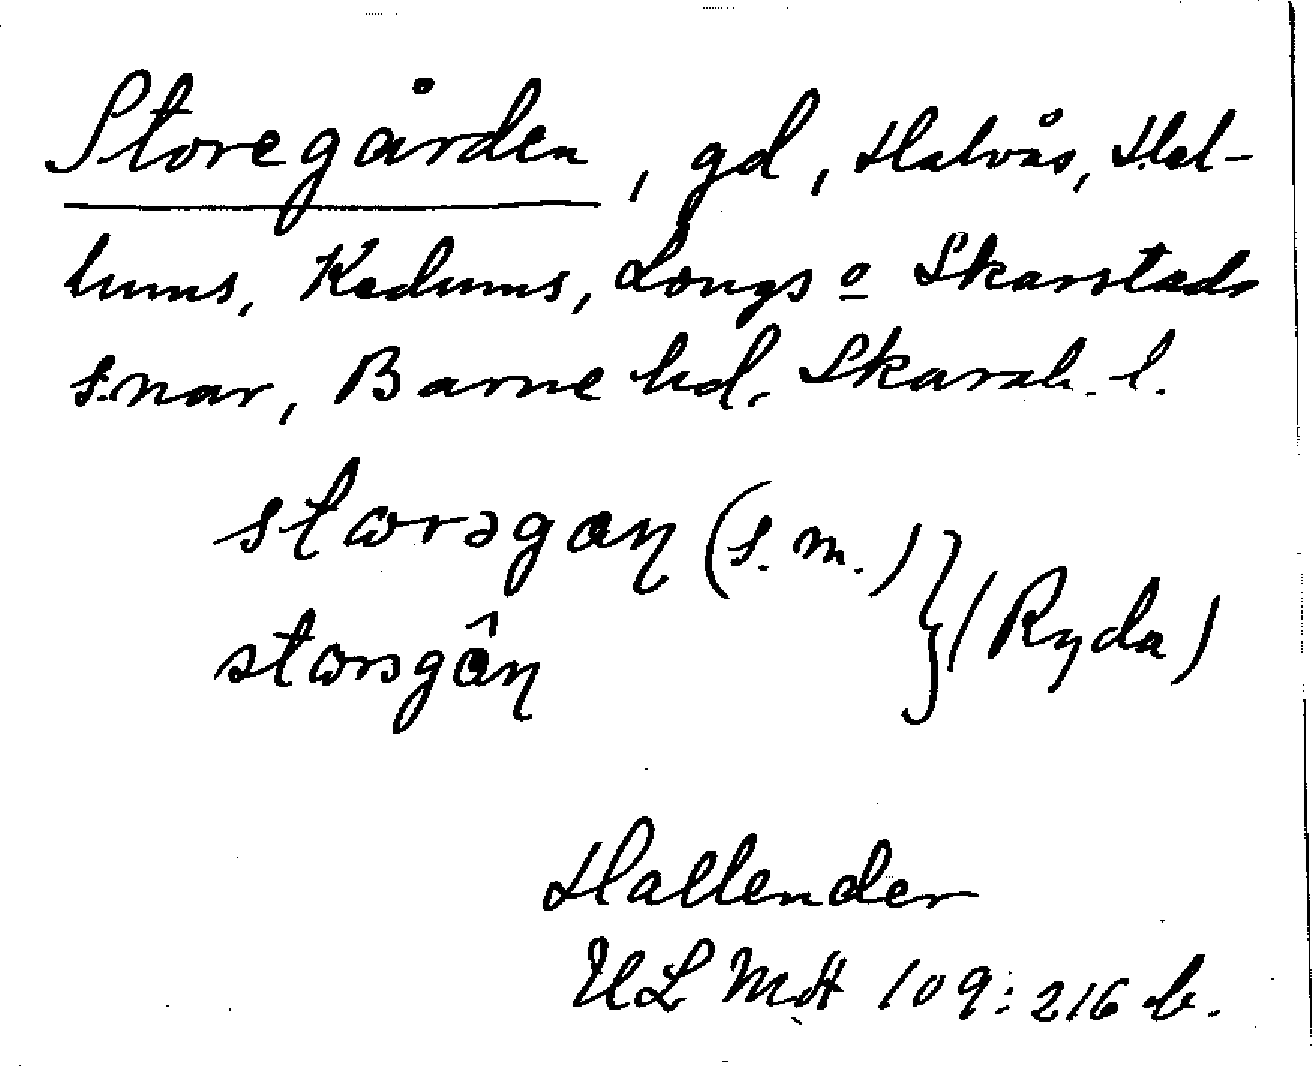 Storegården, gd, Halvås, Hal-
lums, Kedums, Longs o Skarstads
s.nar, Barne hd. Skarab. l.
stωrəgαη (s. m.) } (Ryda)
stωrəgâη
Hallender
ULMA 109:216 b.